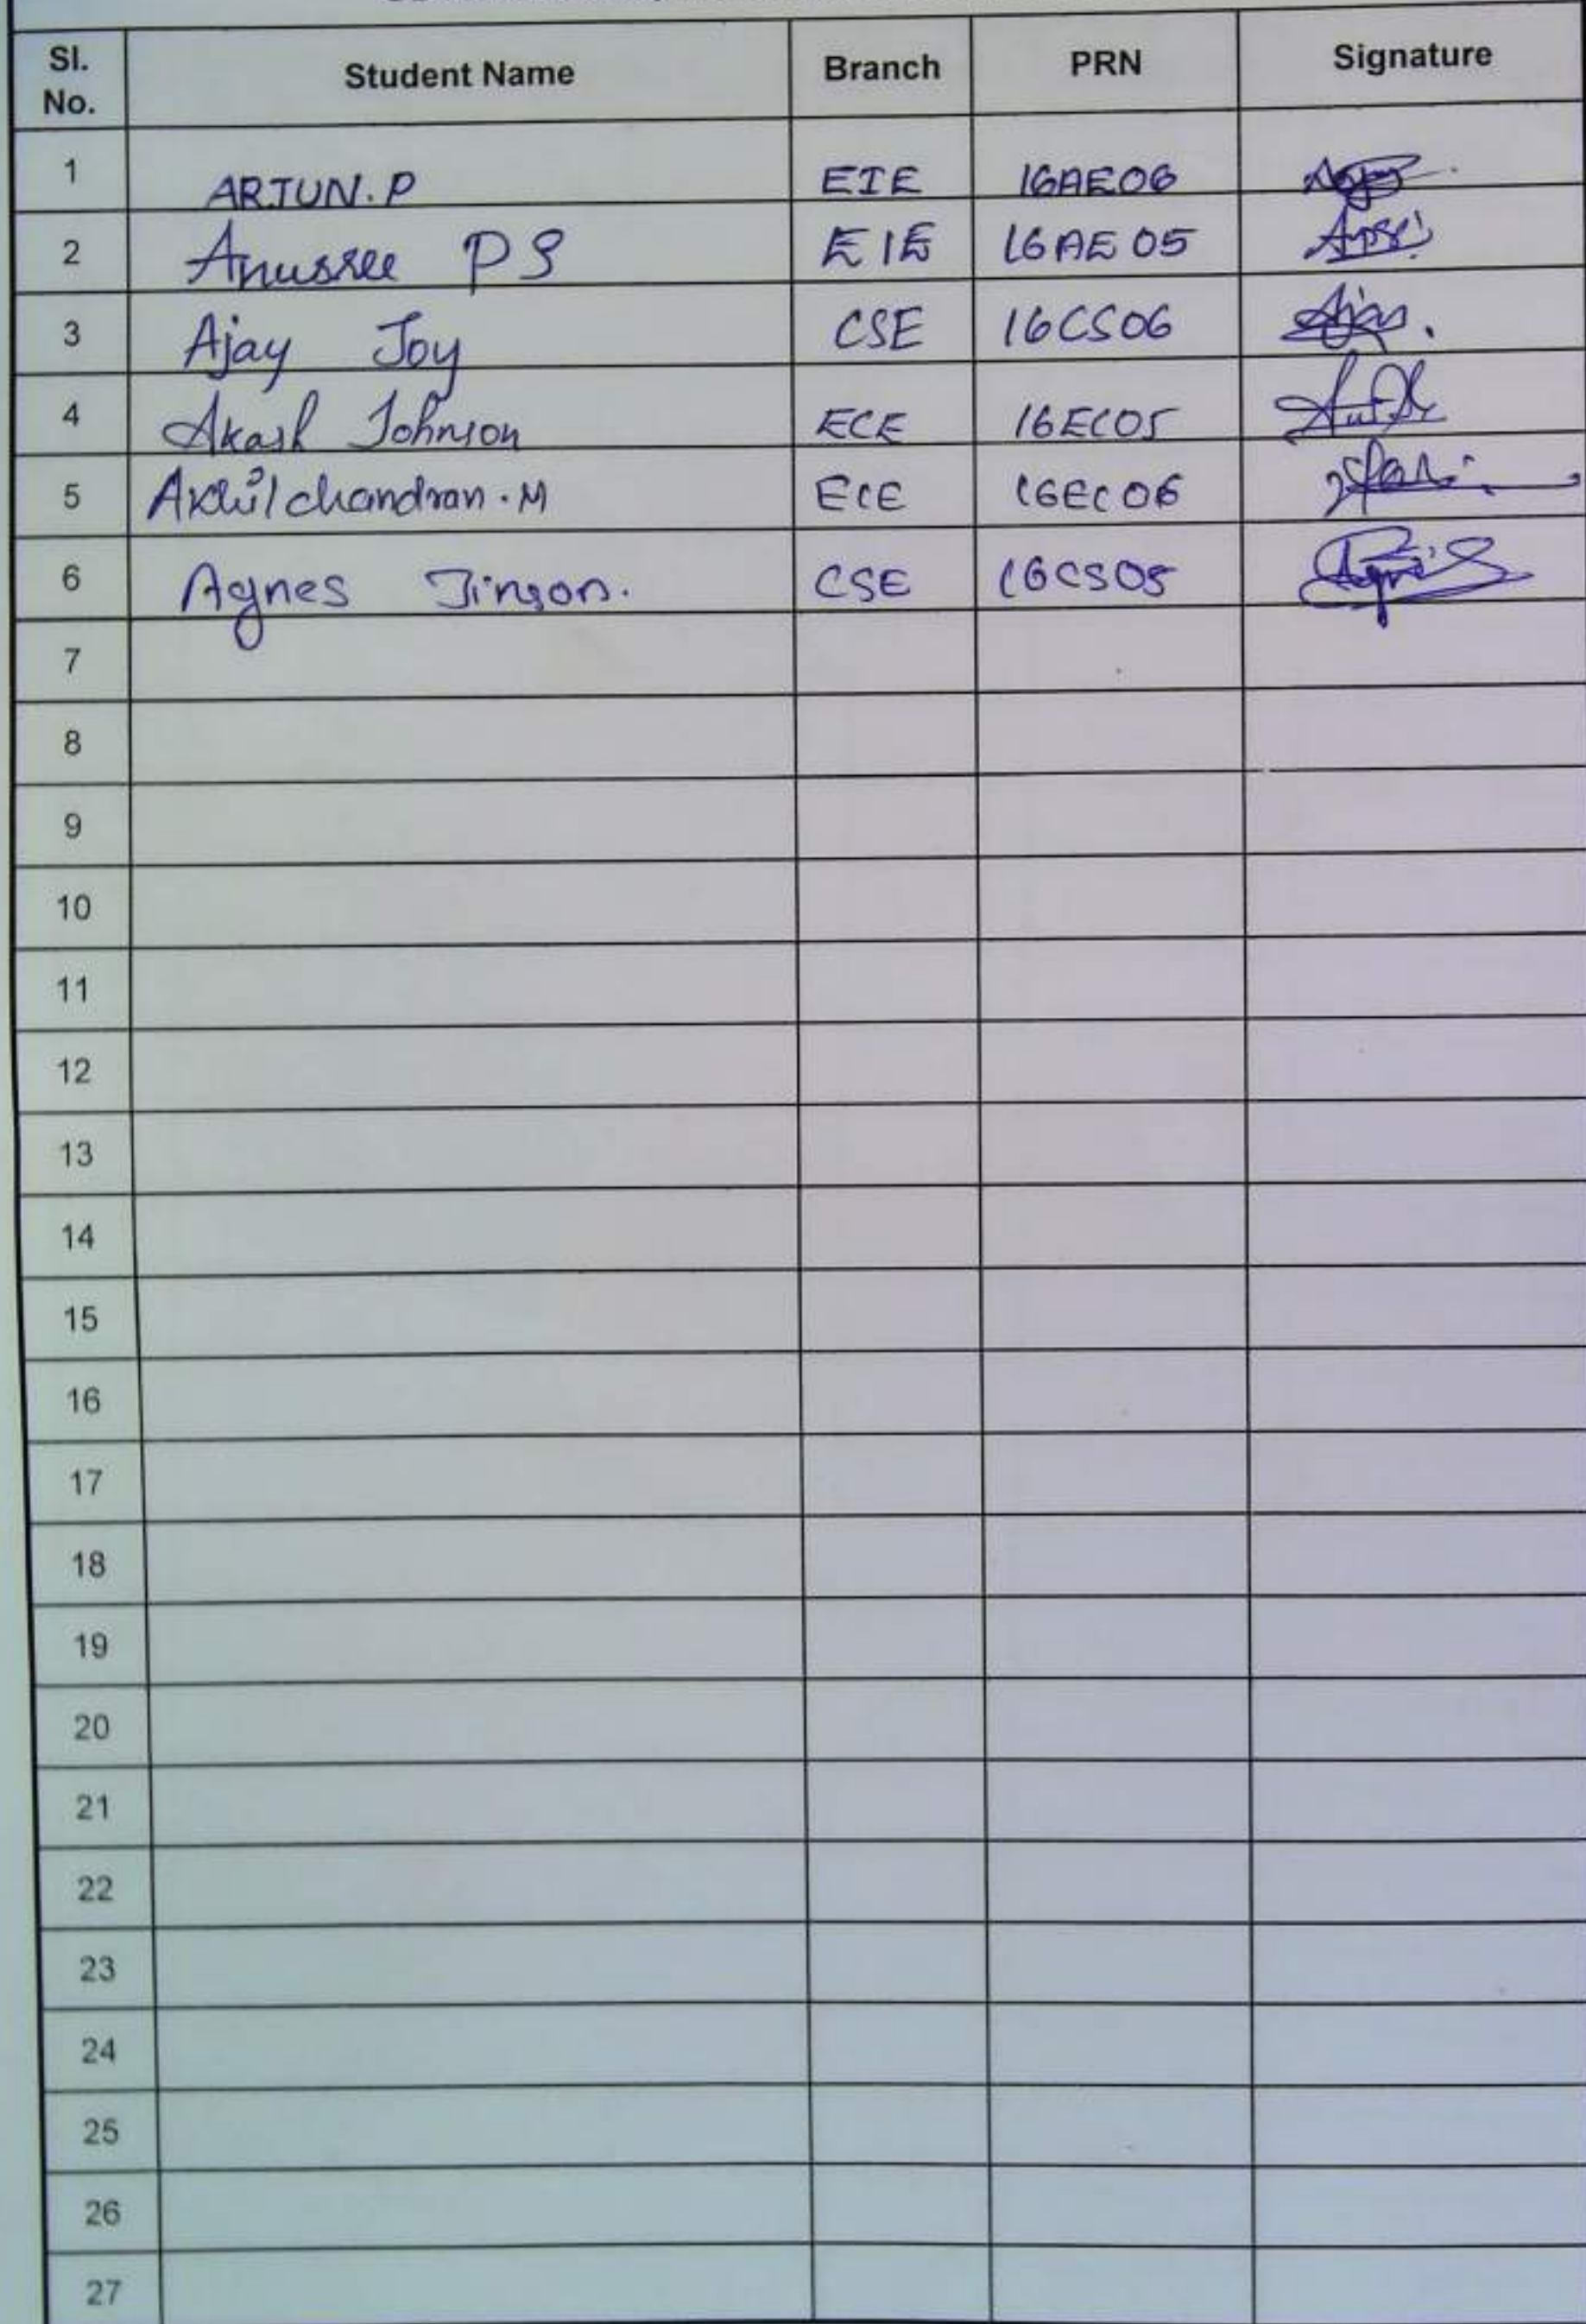 Sl. No. Student Name Branch PRN Signature
1 ARJUN.P EIE 16AE06
2 Anussee PS EIE 16AE05
3 Ajay Joy CSE 16CS06
4 Akash Johnson ECE 16EC05
5 Akhil chandran.M ECE 16EC06
6 Agnes Jinson. CSE 16CS05
7
8
9
10
11
12
13
14
15
16
17
18
19
20
21
22
23
24
25
26
27